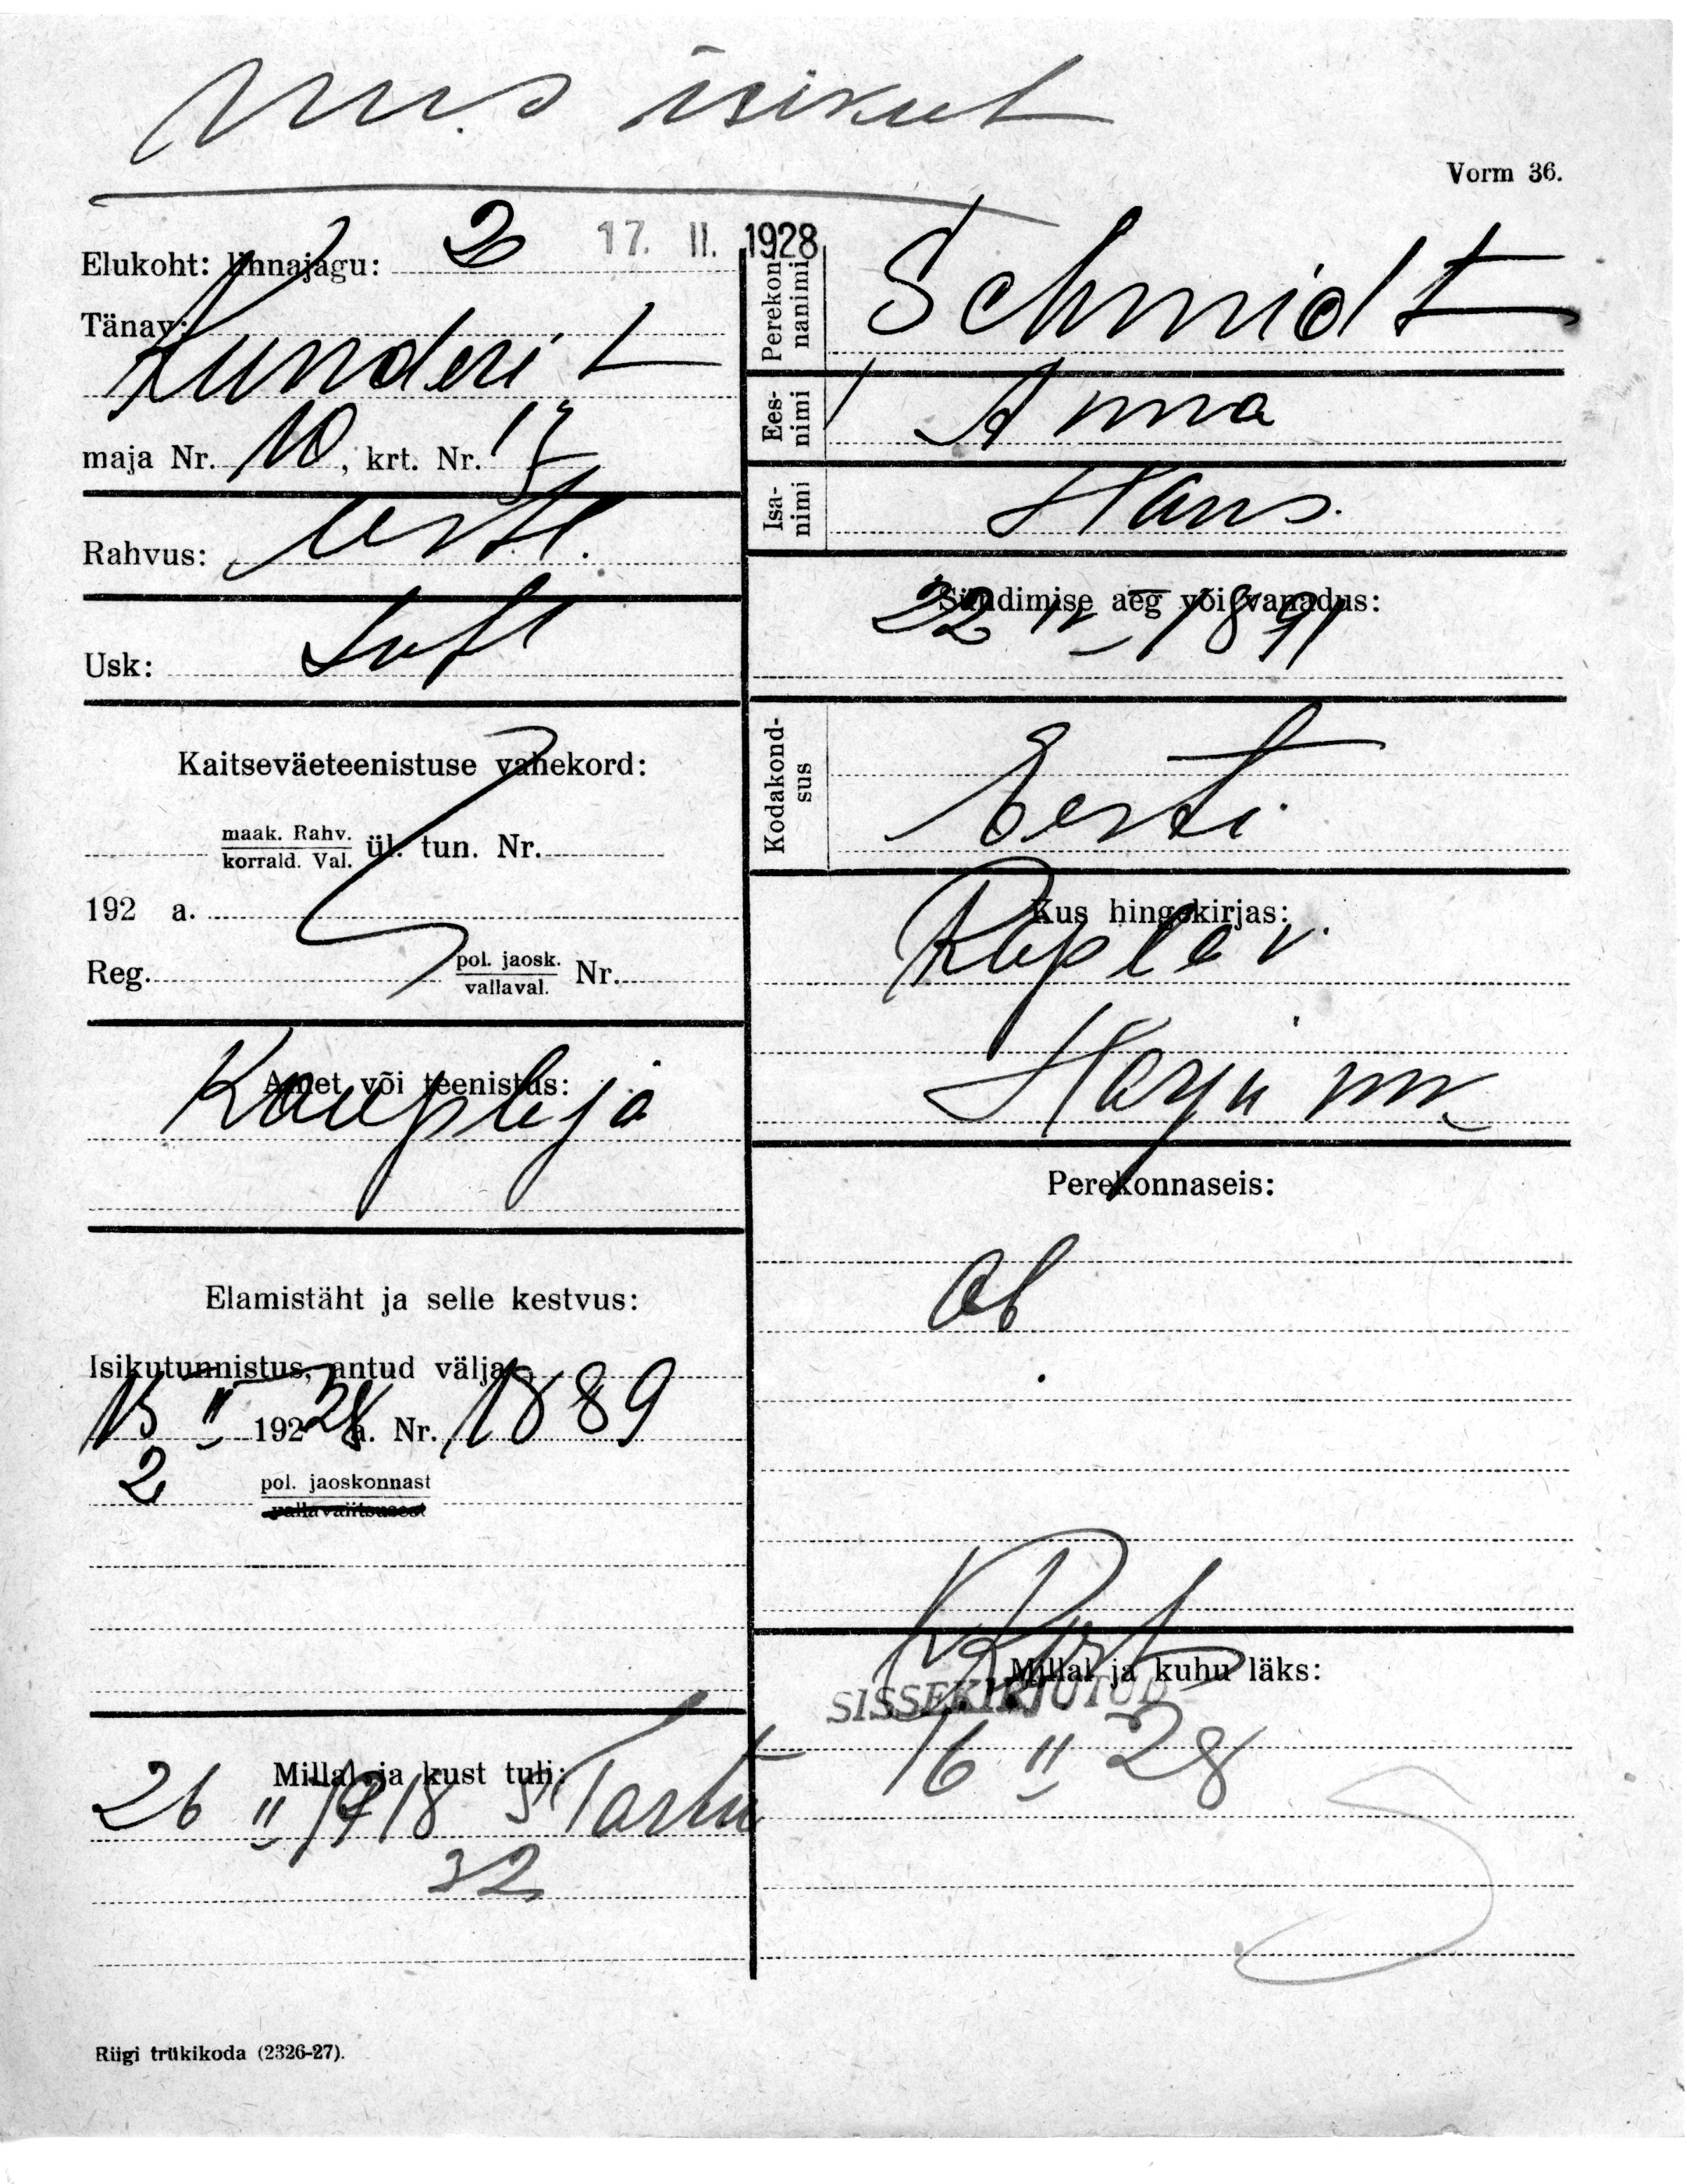 uus isikut
Vorm 36.
17. II. 1928
Elukoht: linnajagu: 2
Tänav:
Kunderi t
maja Nr. 10, krt. Nr. 17
Rahvus: eesti.
Usk: Lutl
Kaitseväeteenistuse vahekord:
maak. Rahv.
korrald. Val. ül. tun. Nr.
192 a.
Reg. pol. jaosk.
vallaval. Nr.
Amet või teenistus:
Kaupleja
Elamistäht ja selle kestvus:
Isikutunnistus, antud välja
15 II 1928 a. Nr. 1889
2 pol. jaoskonnast
vallavalitsusest
Millal ja kust tuli:
26 II 1918 Tartu
32
Riigi trükikoda (2326-27).
Perekonnanimi Schmidt
Ees-
nimi Anna
Isa-
nimi Hans.
Sündimise aeg või vanadus:
22 IV 1891
Kodakond-
sus Eesti
Kus hingekirjas:
Harju mk
Perekonnaseis:
ab
Millal ja kuhu läks:
SISSEKIRJUTUD
16 II 28